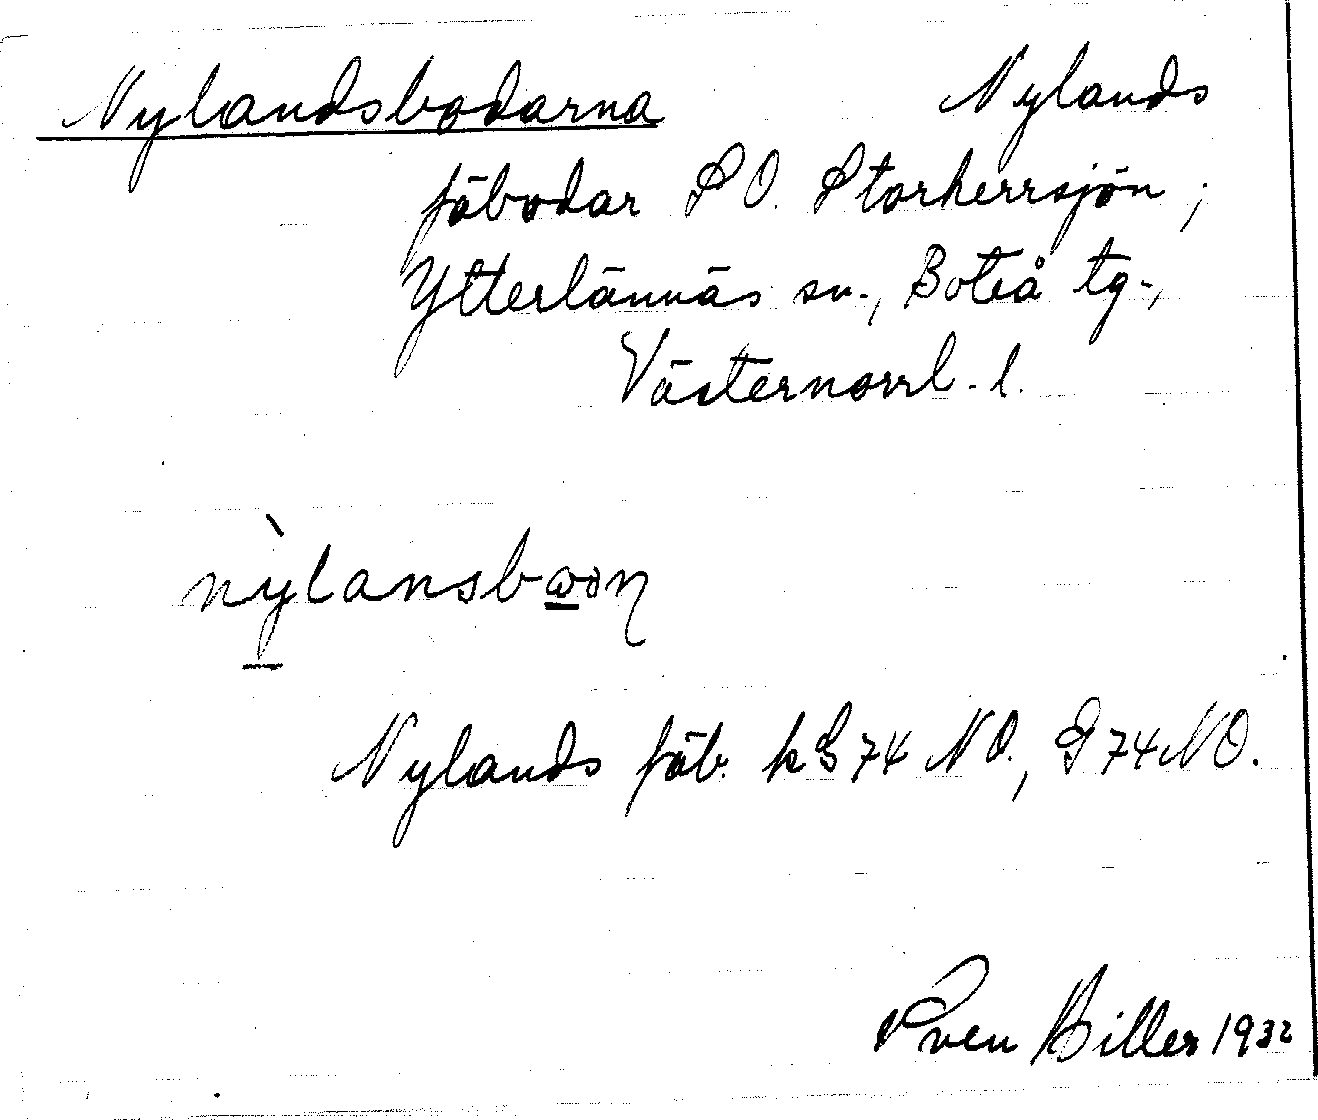 Nylandsbodarna Nylands
fäbodar S O. Storherrsjön ;
Ytterlännäs sn., Boteå tg.,
Västernorrl. l.
nỳlansb
Nylands fäb. k G 74 N O., G 74 N O.
Sven Biller 1932